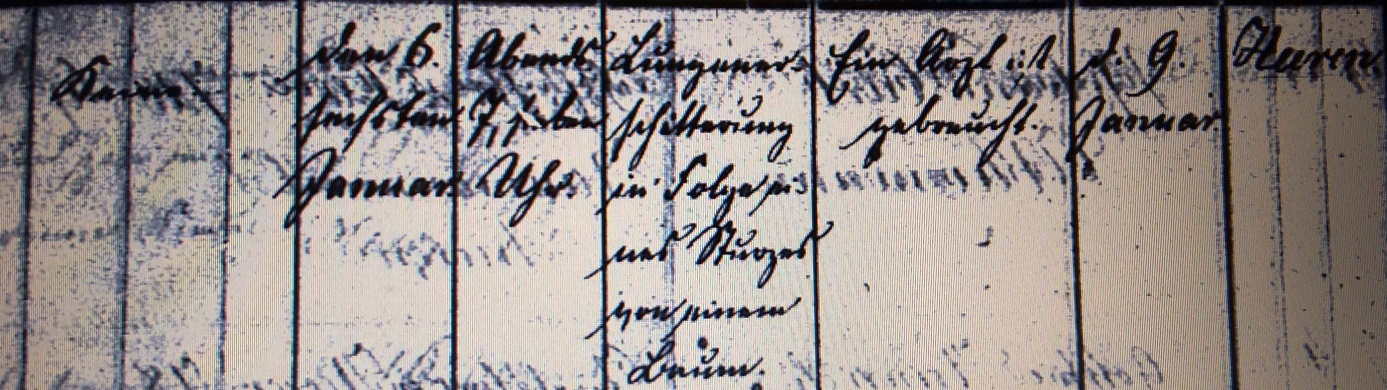 Keine
den 6.
sechsten
Januar
Abends
7, sieben
Uhr.
Lungener-
schütterung
in Folge ei-
nes Sturzes
von einem
Baum.
Ein Arzt ist
gebraucht.
d. 9.
Januar
Haren